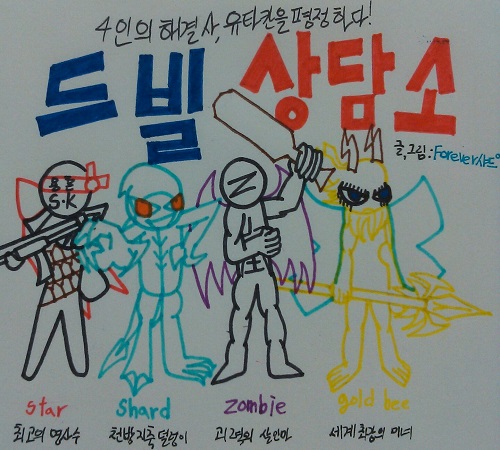 4인의 해결사, 유타칸을 평정하다!
드빌 상담소
글,그림 : Forever샤드
S·K
Z
star
shard
zombie
gold bee
최고의 명사수
천방지축 덜렁이
괴력의 살인마
세계최강의 미녀